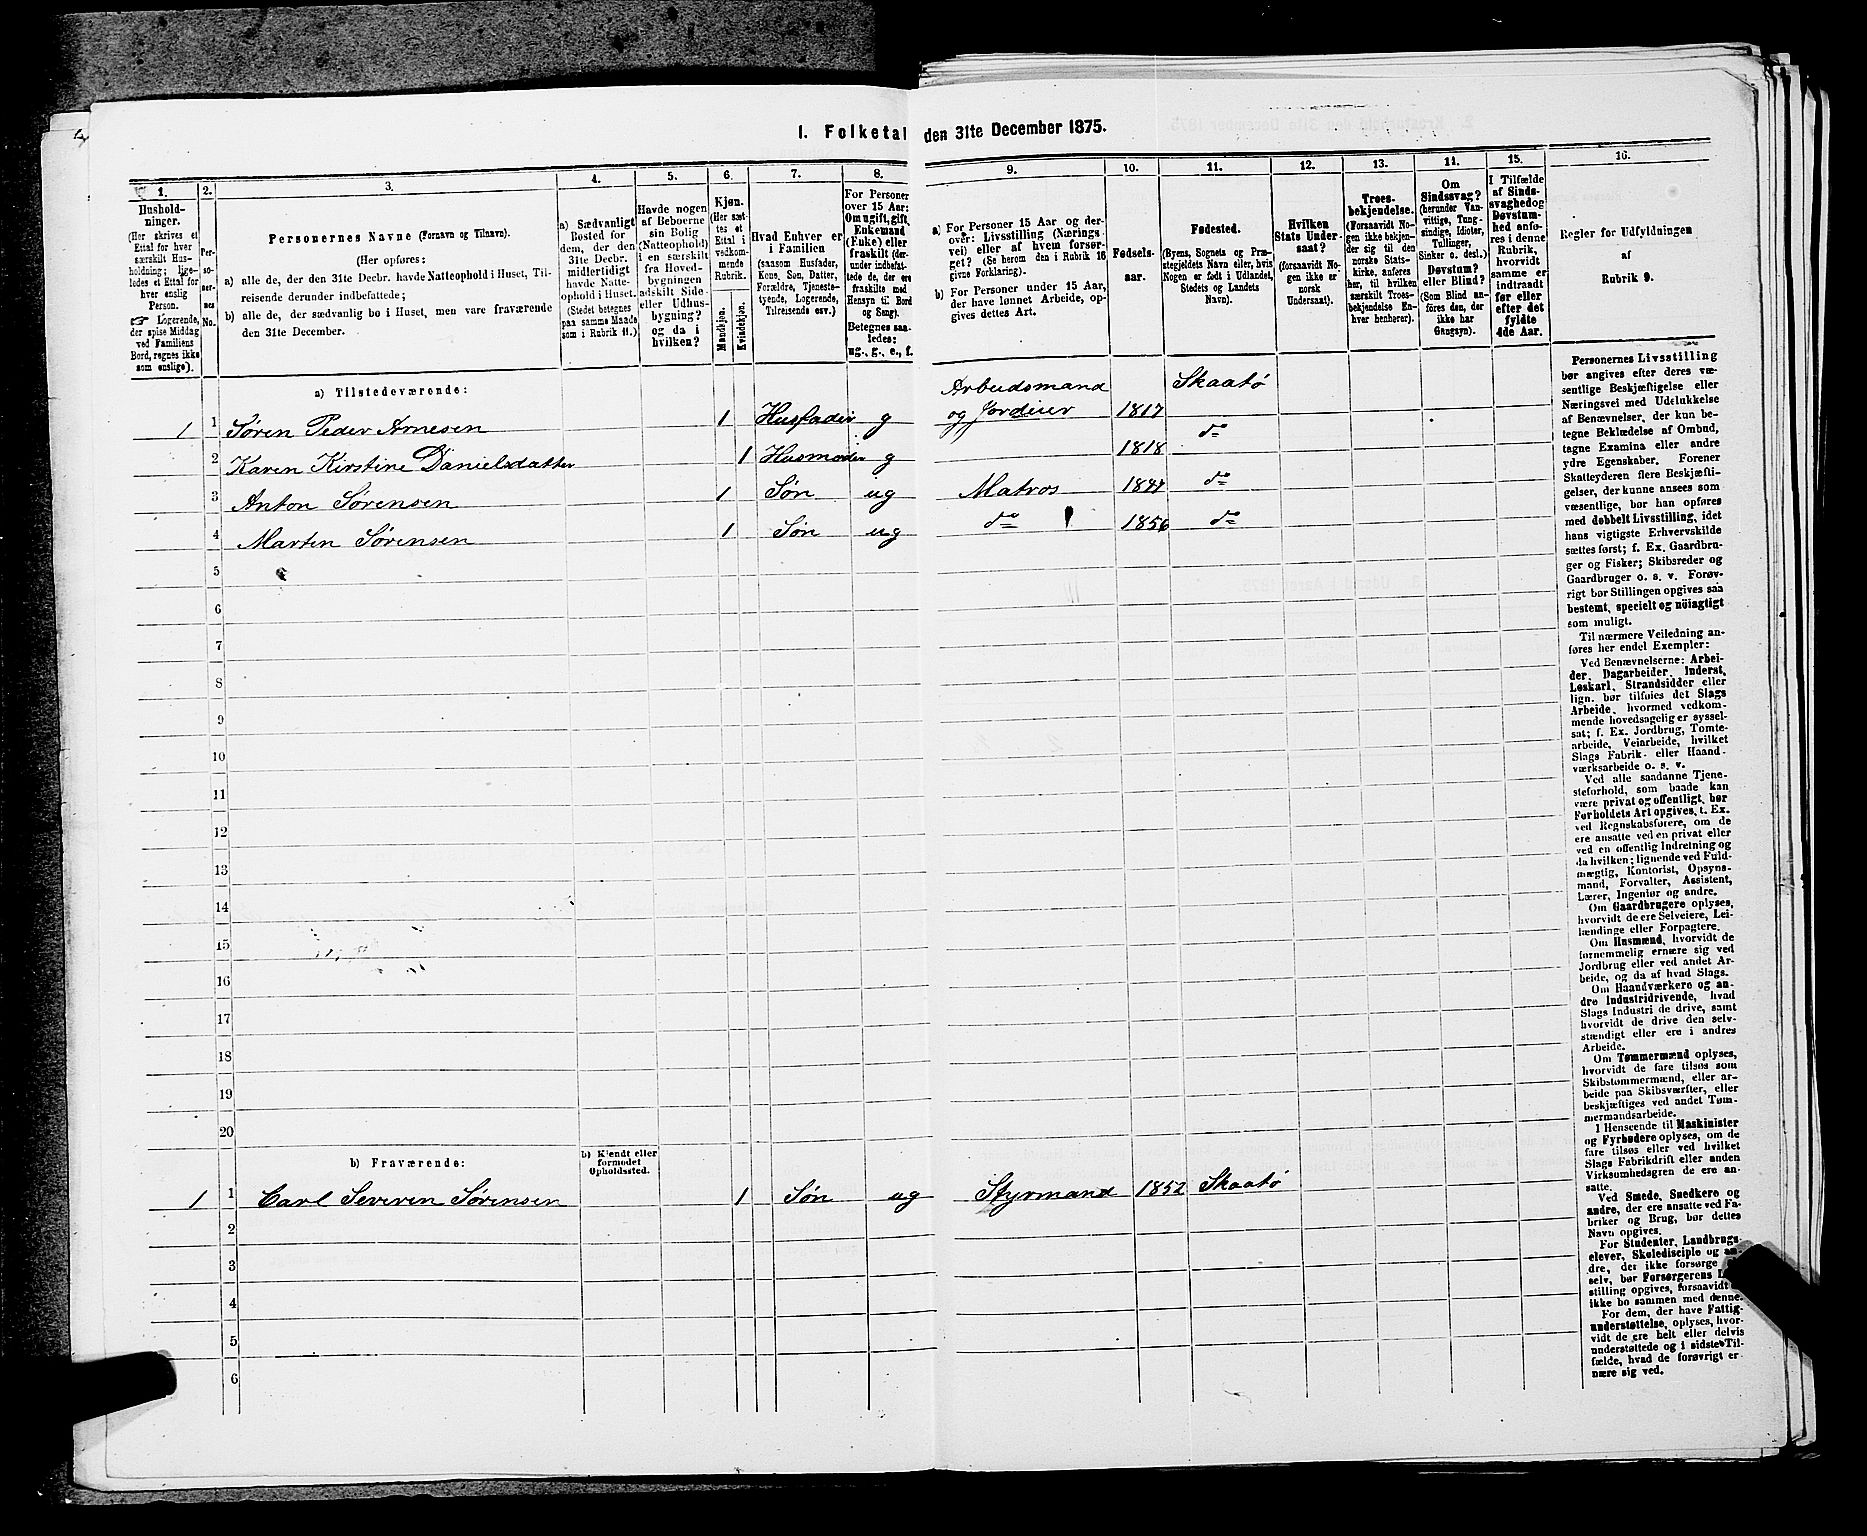 I. Folketal den 31te December 1875.
1. 2. 3. 4. 5. 6. 7. 8. 9. 10. 11. 12. 13. 14. 15. 16.
Hushold-
ninger.
(Her skrives et
Ettal for hver
særskilt Hus-
holdning; lige-
ledes et Ettal for
hver enslig
Person.
☞ Logerende,
der spise Middag
ved Familiens
Bord, regnes ikke
som enslige).
Per-
so-
ner-
nes
No.
Personernes Navne (Fornavn og Tilnavn).
(Her opføres:
a) alle de, der den 31te Decbr. havde Natteophold i Huset, Til-
reisende derunder indbefattede;
b) alle de, der sædvanlig bo i Huset, men vare fraværende
den 31te December.
a) Sædvanligt
Bosted for
dem, der den
31te Decbr.
midlertidigt
havde Natte-
ophold i Huset.
(Stedet betegnes
paa samme Maade
som i Rubrik 11.)
Havde nogen
af Beboerne
sin Bolig
(Natteophold)
i en særskilt
fra Hoved-
bygningen
adskilt Side-
eller Udhus-
bygning?
og da i
hvilken?
Kjøn.
(Her sæt-
tes et
Ettal i
vedkom-
mende
Rubrik.
Mandkjøn.
Kvindekjøn.
Hvad Enhver er
i Familien
(saasom Husfader,
Kone, Søn, Datter,
Forældre, Tjeneste-
tyende, Logerende,
Tilreisende osv.)
For Personer
over 15 Aar:
Om ugift, gift,
Enkemand
(Enke) eller
fraskilt (der-
under indbefat-
tede de, der ere
fraskilte med
Hensyn til Bord
og Seng).
Betegnes saa-
ledes:
ug., g., e., f.
a) For Personer 15 Aar og der-
over: Livsstilling (Nærings-
vei) eller af hvem forsør-
get? (Se herom den i Rubrik 16
givne Forklaring).
b) For Personer under 15 Aar,
der have lønnet Arbeide, op-
gives dettes Art.
Fødsels-
aar.
Fødested.
(Byens, Sognets og Præ-
stegjeldets Navn eller, hvis
Nogen er født i Udlandet,
Stedets og Landets
Navn).
Hvilken
Stats Under-
saat?
(forsaavidt No-
gen ikke er
norsk
Undersaat).
Troes-
bekjendelse.
(Forsaavidt No-
gen ikke bekjen-
der sig til den
norske Stats-
kirke, anføres
her, til hvilken
særskilt Troes-
bekjendelse En-
hver henhører).
Om
Sindssvag?
(herunder Van-
vittige, Tung-
sindige, Idioter,
Tullinger,
Sinker o. desl.)
Døvstum?
eller Blind?
(Som Blind an-
føres den, der
ikke har
Gangsyn).
I Tilfælde
af Sinds-
svaghed og
Døvstum-
hed anfø-
res i denne
Rubrik,
hvorvidt
samme er
indtraadt
før eller
efter det
fyldte
4de Aar.
Regler for Udfyldningen
af
Rubrik 9.
a) Tilstedeværende:
1 1 Søren Peder Arnesen 1 Husfader g Arbeidsmand og Jordeier 1817 Skaatø
2 Karen Kirstine Danielsdatter 1 Husmoder g 1818 do
3 Anton Sørensen 1 Søn ug Matros 1844 do
4 Martin Sørensen 1 Søn ug do 1856 do
5
6
7
8
9
10
11
12
13
14
15
16
17
18
19
20
b) Fraværende:
b) Kjendt eller
formodet
Opholdssted.
1 1 Carl Severin Sørensen 1 Søn ug Styrmand 1852 Skaatø
2
3
4
5
6
Personernes Livsstilling
bør angives efter deres væ-
sentlige Beskjæftigelse eller
Næringsvei med Udelukkelse
af Benævnelser, der kun be-
tegne Beklædelse af Ombud,
tagne Examina eller andre
ydre Egenskaber. Forener
Skatteyderen flere Beskjæfti-
gelser, der kunne ansees som
væsentlige, bør han opføres
med dobbelt Livsstilling, idet
hans vigtigste Erhvervskilde
sættes først; f. Ex. Gaardbru-
ger og Fisker; Skibsreder og
Gaardbruger o. s. v. Forøv-
rigt bør Stillingen opgives saa
bestemt, specielt og nöiagtigt
som muligt.
Til nærmere Veiledning an-
føres her endel Exempler:
Ved Benævnelserne: Arbei-
der, Dagarbeider, Inderst,
Løskarl, Strandsidder eller
lign. bør tilføies det Slags
Arbeide, hvormed vedkom-
mende hovedsagelig er syssel-
sat; f. Ex. Jordbrug, Tomte-
arbeide, Veiarbeide, hvilket
Slags Fabrik- eller Haand-
værksarbeide o. s. v.
Ved alle saadanne Tjene-
steforhold, som baade kan
være privat og offentligt, bør
Forholdets Art opgives, t. Ex.
ved Regnskabsførere, om de
ere ansatte ved en privat eller
ved en offentlig Indretning og
da hvilken; lignende ved Fuld-
mægtig, Kontorist, Opsyns-
mand, Forvalter, Assistent,
Lærer, Ingeniør og andre.
Om Gaardbrugere oplyses,
hvorvidt de ere Selveiere, Lei-
lændinge eller Forpagtere.
Om Husmænd, hvorvidt de
fornemmelig ernære sig ved
Jordbrug eller ved andet Ar-
beide, og da af hvad Slags.
Om Haandværkere og an-
dre Industridrivende, hvad
Slags Industri de drive, samt
hvorvidt de drive den selv-
stændigt eller ere i andres
Arbeide.
Om Tømmermænd oplyses,
hvorvidt de fare tilsøs som
Skibstømmermænd, eller ar-
beide paa Skibsværfter, eller
beskjæftiges ved andet Tøm-
mermandsarbeide.
I Henseende til Maskinister
og Fyrbødere oplyses, om de
fare tilsøs eller ved hvilket
Slags Fabrikdrift eller anden
Virksomhedsgren de ere an-
satte.
Ved Smede, Snedkere og
andre, der ere ansatte ved Fa-
briker og Brug, bør dettes
Navn opgives.
For Studenter, Landbrugs-
elever, Skoledisciple og an-
dre, der ikke forsørge
selv, bør Forsørgerens
stilling opgives, forsaavidt
ikke bo sammen med denne.
For dem, der have Fattig-
understøttelse, oplyses, hvor-
vidt de ere helt eller delvis
understøttede og i sidste Til-
fælde, hvad de forøvrigt er-
nære sig ved.